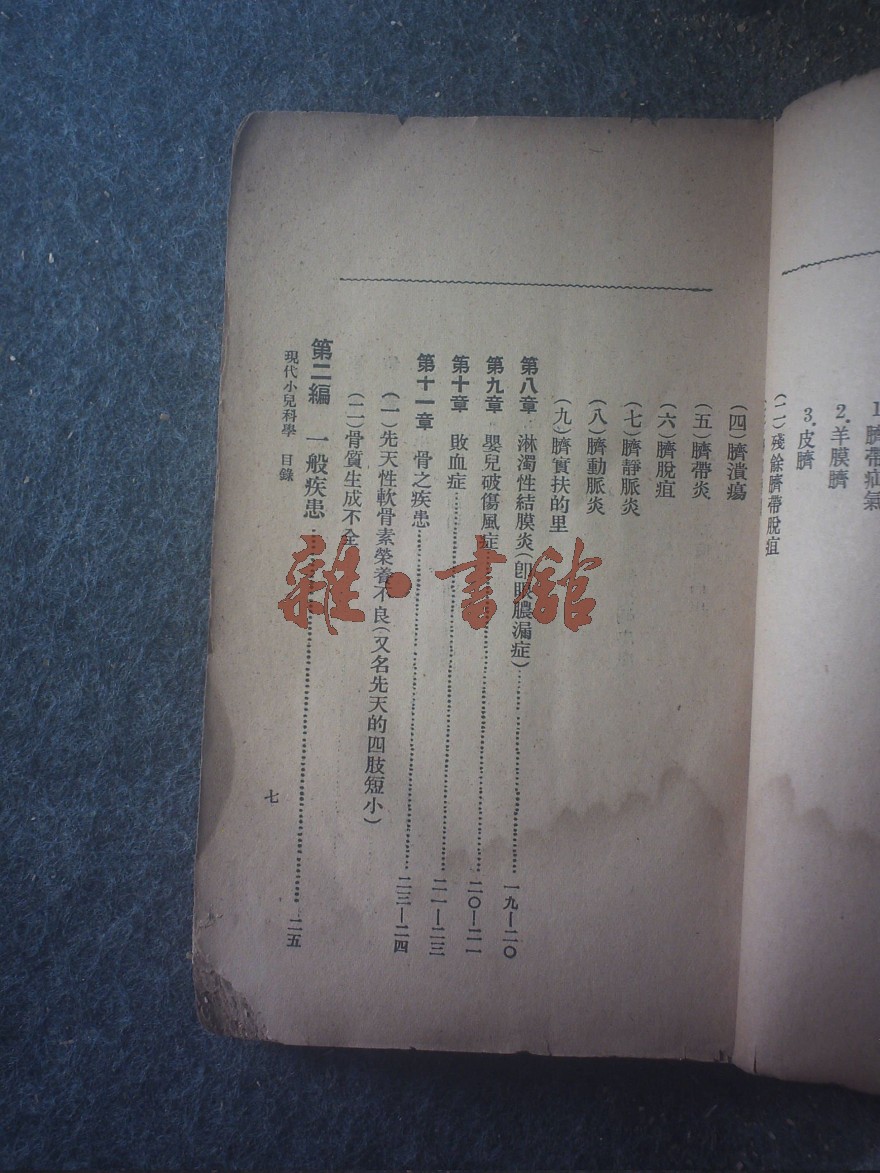 1.臍帶疝氣
2.羊膜臍
3.皮臍
(二)殘餘臍帶脫疽
(四)臍潰瘍
(五)臍帶炎
(六)臍脫疽
(七)臍靜脈炎
(八)臍動脈炎
(九)臍實扶的里
第八章 淋濁性結膜炎(卽眼膿漏症)……一九—二〇
第九章 嬰兒破傷風症……二〇—二一
第十章 敗血症……二一—二三
第十一章 骨之疾患……二三—二四
(一)先天性軟骨素榮養不良(又名先天的四肢短小)
(二)骨質生成不全
第二編 一般疾患……二五
現代小兒科學 目錄
七
雜·書館